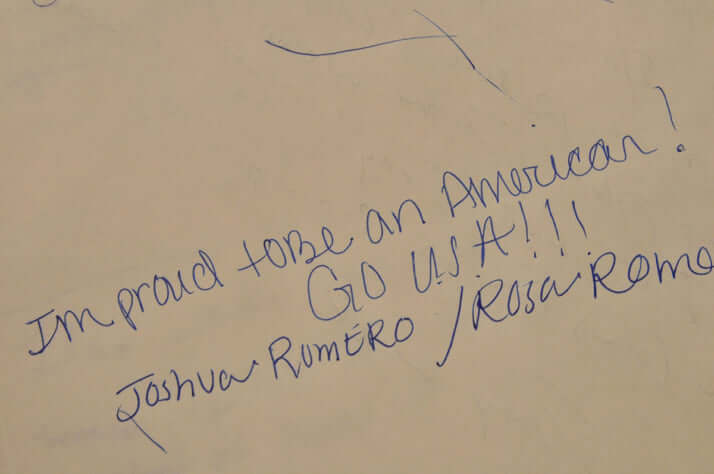 Im proud to Be an American!
GO U.S.A!!!
Joshua ROMERO / Rosa Rome